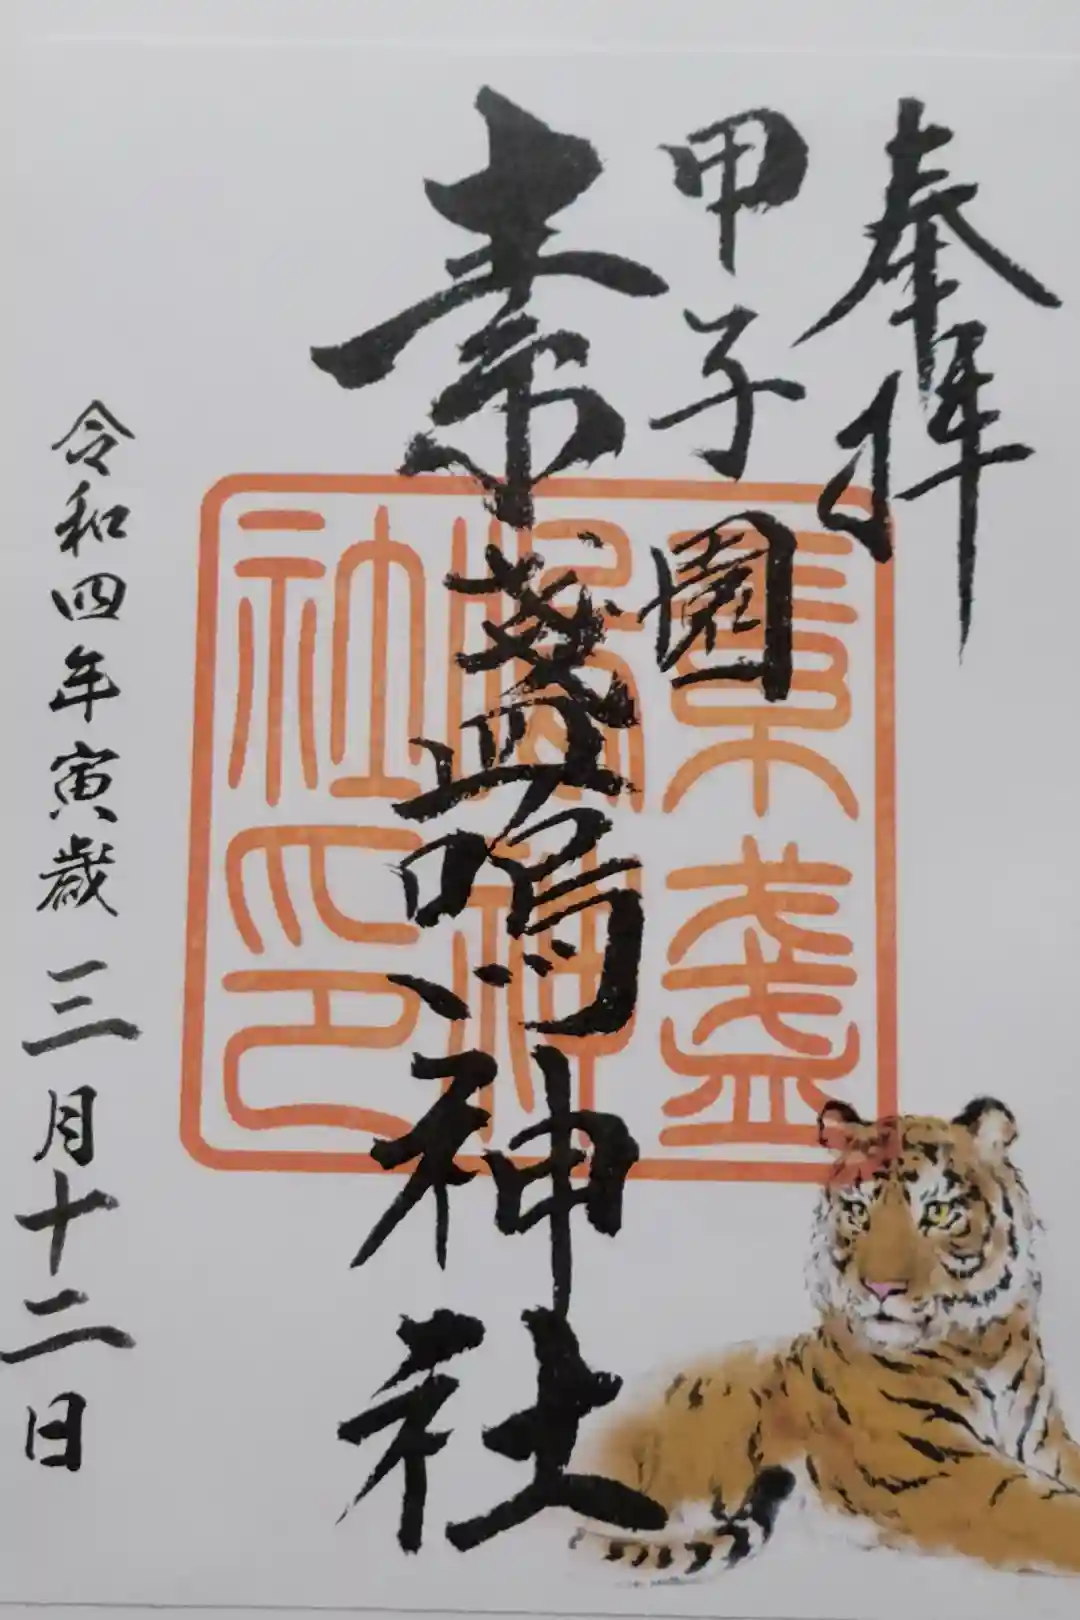 奉拝
甲子園
素盞嗚神社
令和四年寅歳三月十二日
素盞
嗚神
社印